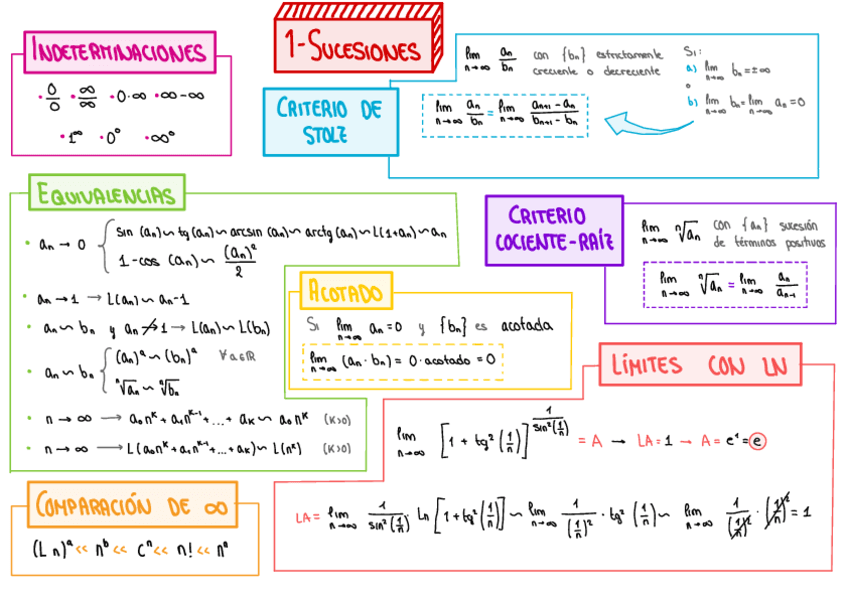 1-SUCESIONES
INDETERMINACIONES
• 0/0 • ∞/∞ • 0·∞ • ∞-∞
• 1^∞ • 0^0 • ∞^0
CRITERIO DE
STOLZ
lim n→∞ an/bn con {bn} estrictamente
creciente o decreciente
Si:
a) lim n→∞ bn = ±∞
o
b) lim n→∞ bn = lim n→∞ an = 0
lim n→∞ an/bn = lim n→∞ (an+1 - an)/(bn+1 - bn)
EQUIVALENCIAS
• an → 0 { sin (an) ∽ tg (an) ∽ arcsin (an) ∽ arctg (an) ∽ L(1+an) ∽ an
1-cos (an) ∽ (an)²/2
• an → 1 → L(an) ∽ an-1
• an ∽ bn y an ↛ 1 → L(an) ∽ L(bn)
• an ∽ bn { (an)^a ∽ (bn)^a ∀a∈ℝ
ⁿ√an ∽ ⁿ√bn
• n → ∞ → a0n^k + a1n^k-1 + ... + ak ∽ a0n^k (k>0)
• n → ∞ → L(a0n^k + a1n^k-1 + ... + ak) ∽ L(n^k) (k>0)
CRITERIO
COCIENTE-RAÍZ
lim n→∞ ⁿ√an con {an} sucesión
de términos positivos
lim n→∞ ⁿ√an = lim n→∞ an/an-1
ACOTADO
Si lim n→∞ an = 0 y {bn} es acotada
lim n→∞ (an · bn) = 0 · acotado = 0
LÍMITES CON LN
lim n→∞ [1 + tg² (1/n)]^(1/sin²(1/n)) = A → LA = 1 → A = e¹ = e
LA = lim n→∞ 1/sin²(1/n) · Ln [1 + tg² (1/n)] ∽ lim n→∞ 1/(1/n)² · tg² (1/n) ∽ lim n→∞ 1/(1/n)² · (1/n)² = 1
COMPARACIÓN DE ∞
(L n)^a << n^b << c^n << n! << n^n